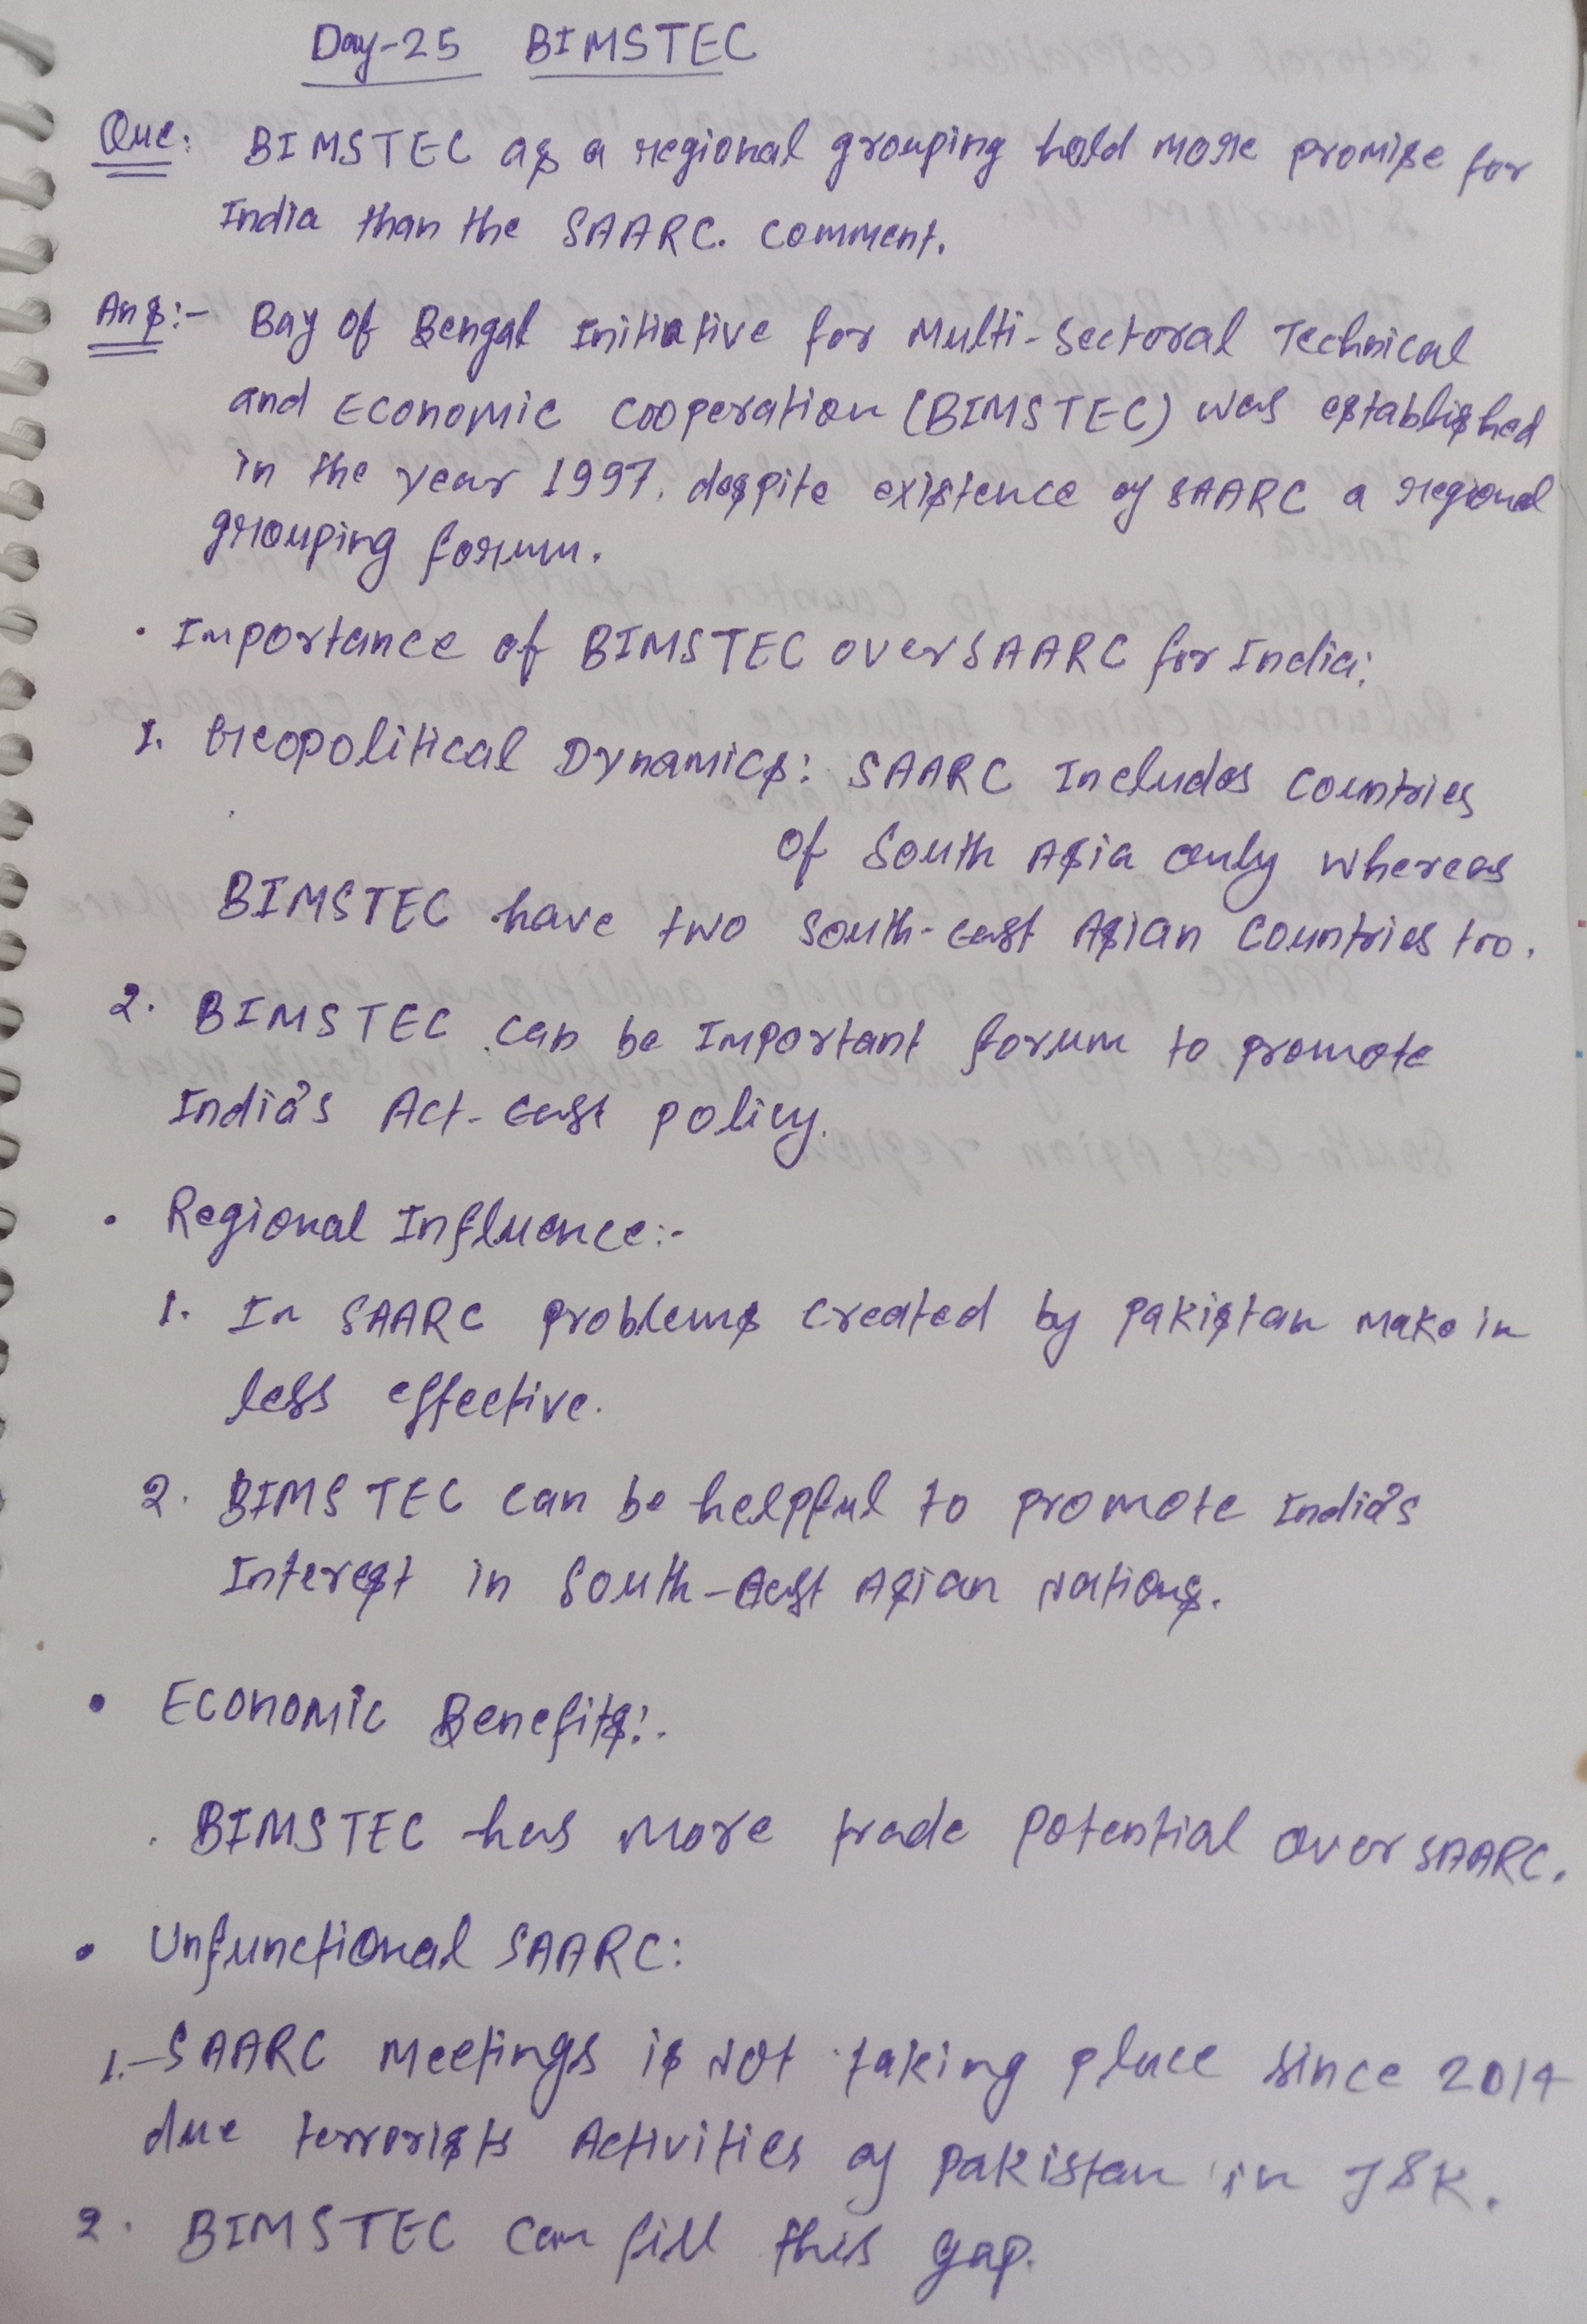 Day-25 BIMSTEC
Que: BIMSTEC as a regional grouping hold more promise for
India than the SAARC. Comment.
Ans:- Bay of Bengal Initiative for Multi-Sectoral Technical
and Economic Cooperation (BIMSTEC) was established
in the year 1997, despite existence of SAARC a regional
grouping forum.
• Importance of BIMSTEC over SAARC for India:
1. Geopolitical Dynamics: SAARC Includes Countries
of South Asia only whereas
BIMSTEC have two South-East Asian Countries too.
2. BIMSTEC can be Important forum to promote
India's Act-East policy.
• Regional Influence:-
1. In SAARC problems created by Pakistan make in
less effective.
2. BIMSTEC can be helpful to promote India's
Interest in South-East Asian Nations.
• Economic Benefits:-
. BIMSTEC has more trade potential over SAARC.
• Unfunctional SAARC:
1.- SAARC Meetings is not taking place since 2014
due terrorists Activities of Pakistan in J&K.
2. BIMSTEC can fill this gap.